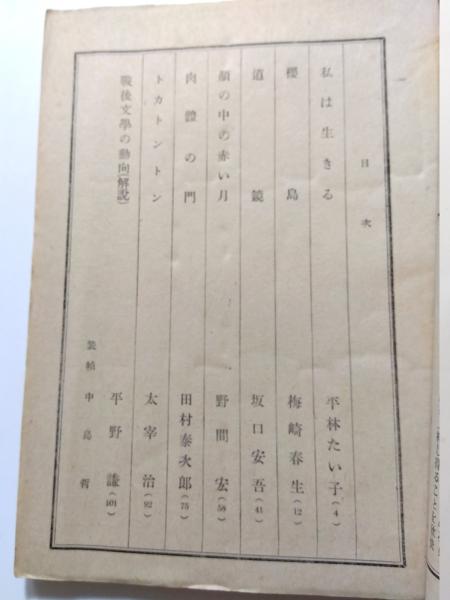 目次
私は生きる 平林たい子(4)
櫻島 梅崎春生(12)
道鏡 坂口安吾(41)
顔の中の赤い月 野間宏(58)
肉體の門 田村泰次郎(75)
トカトントン 太宰治(92)
戰後文學の動向(解説) 平野謙(101)
装幀 中島